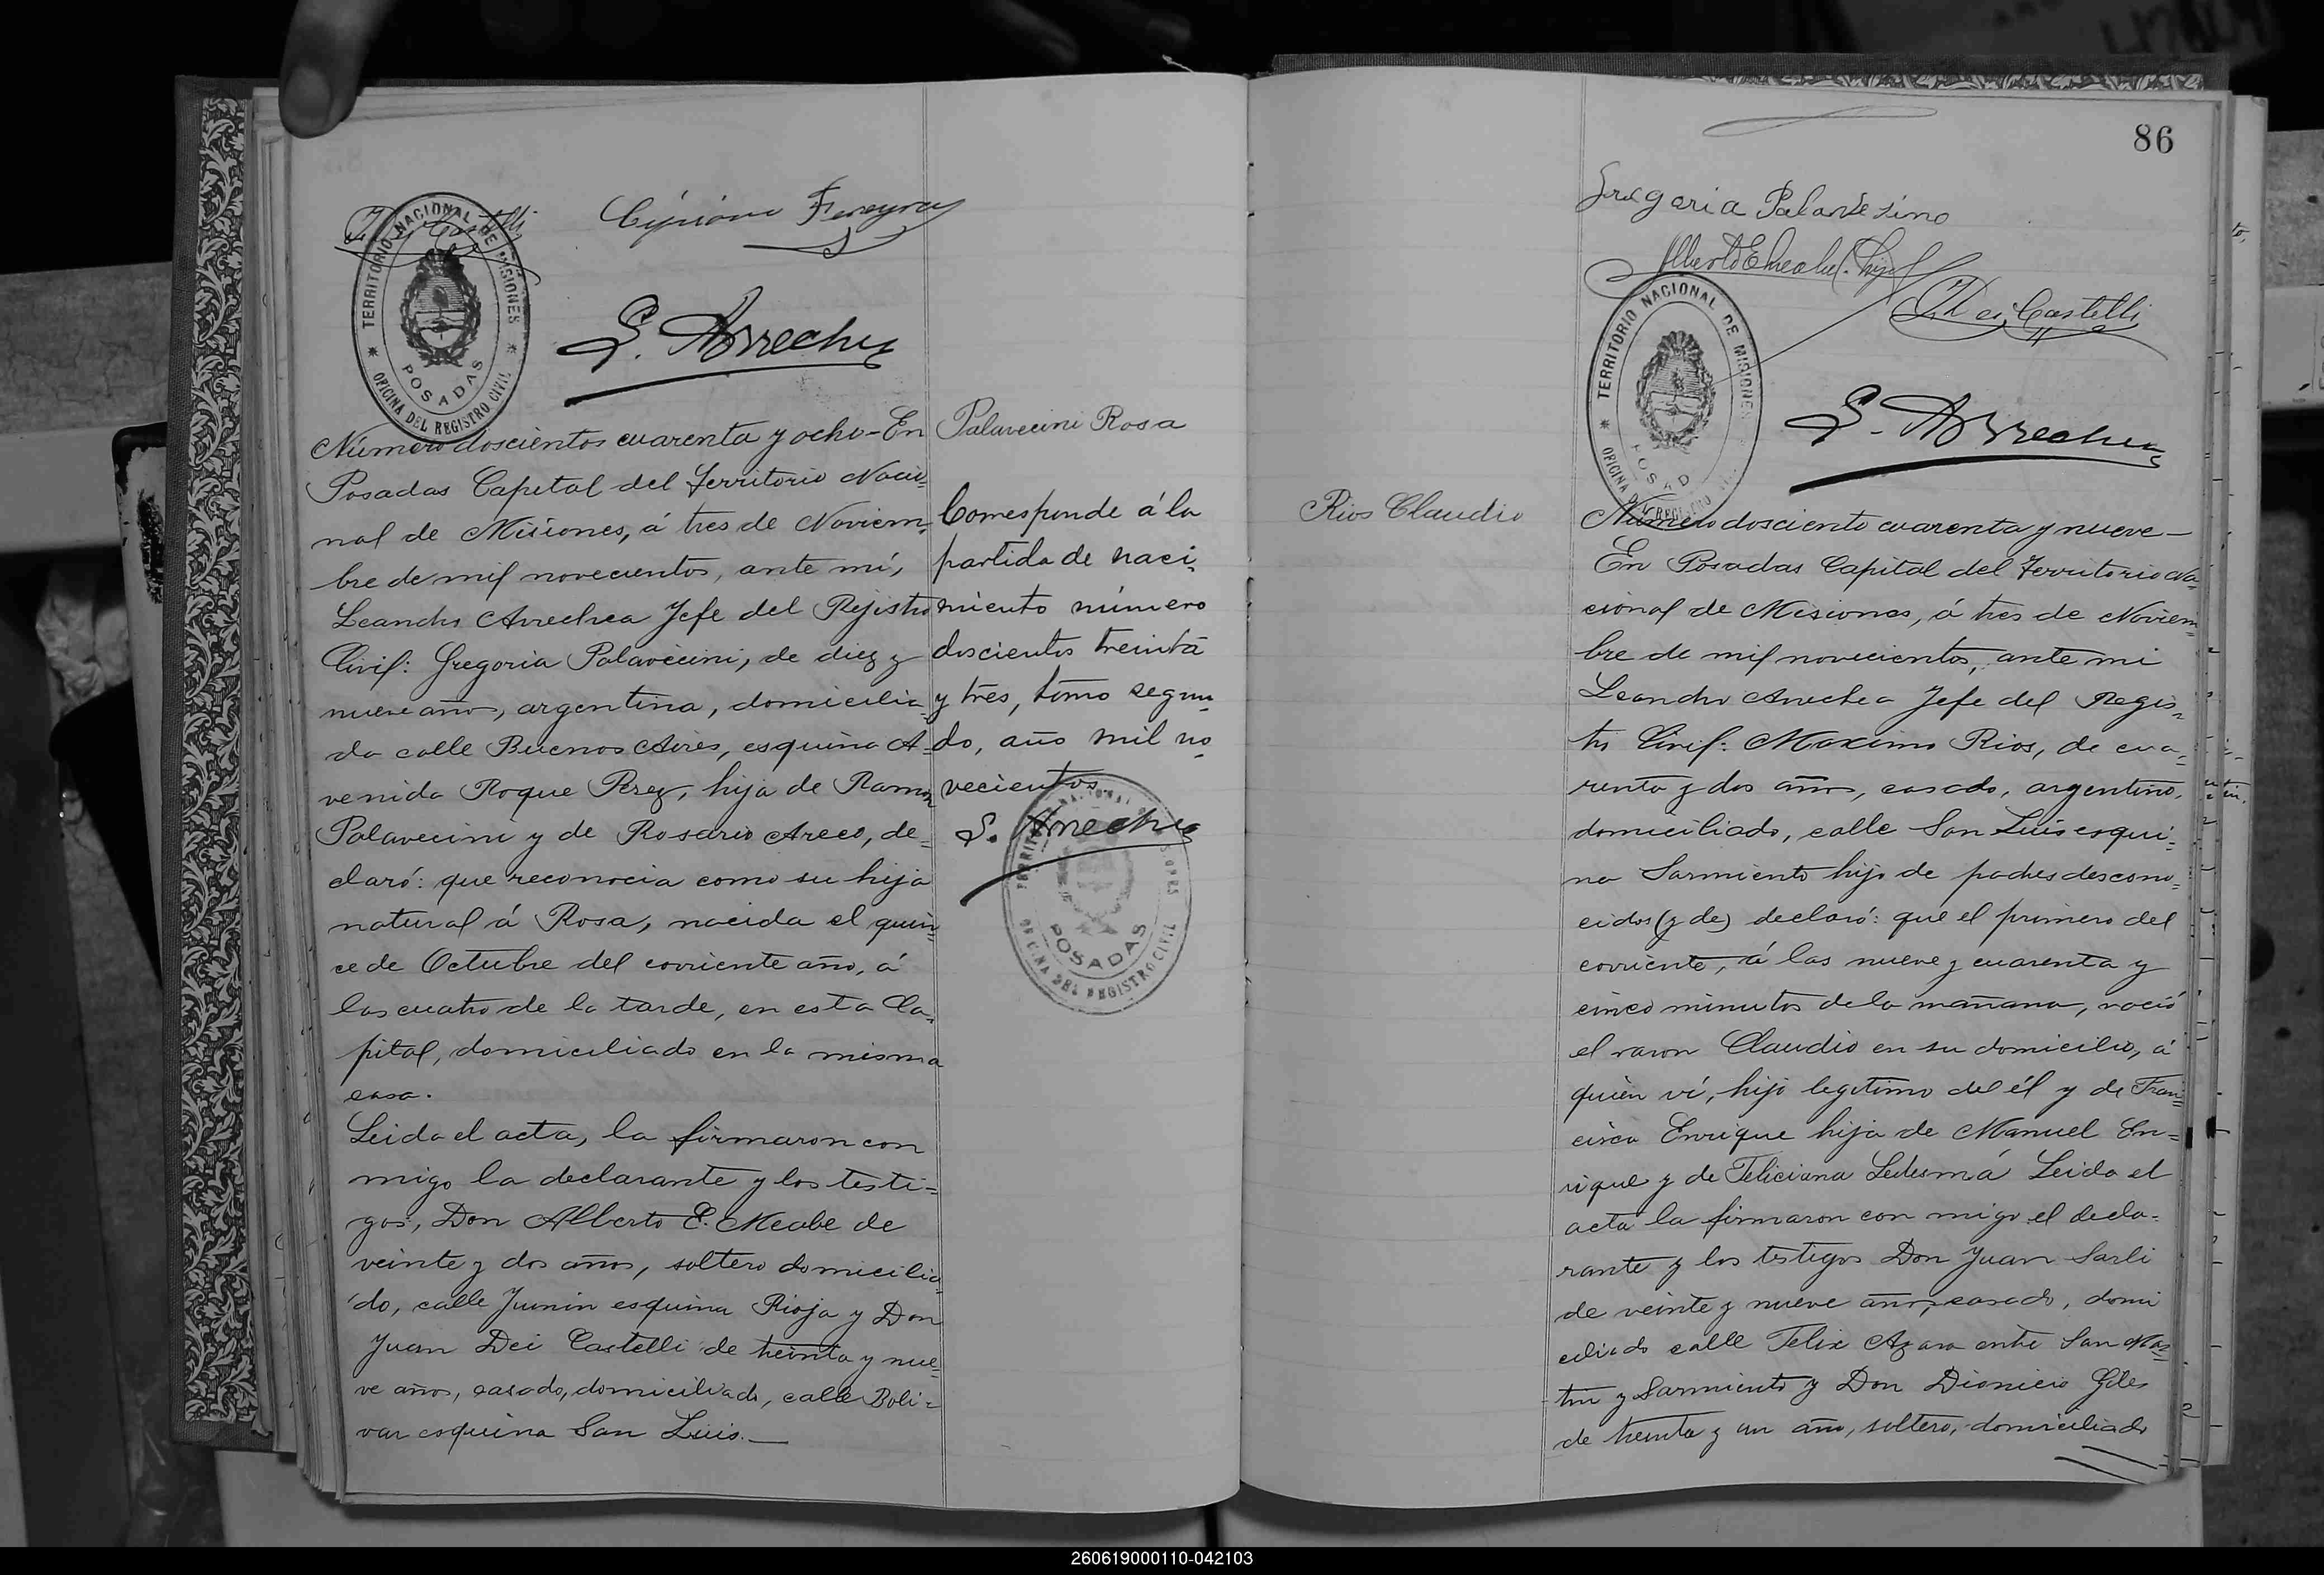 J. Dei Castelli
Cipriano Fereyra
TERRITORIO NACIONAL DE MISIONES
POSADAS
OFICINA DEL REGISTRO CIVIL
L. Arrechea
Número doscientos cuarenta y ocho - En
Posadas Capital del Territorio Nacio-
nal de Misiones, á tres de Noviem-
bre de mil novecientos, ante mí,
Leandro Arrechea Jefe del Rejistro
Civil: Gregoria Palavecini, de diez y
nueve años, argentina, domicilia-
da calle Buenos Aires, esquina A-
venida Roque Perez, hija de Ramon
Palavecini y de Rosario Areco, de-
claró: que reconocia como su hija
natural á Rosa, nacida el quin-
ce de Octubre del corriente año, á
las cuatro de la tarde, en esta Ca-
pital, domiciliado en la misma
casa.
Leida el acta, la firmaron con
migo la declarante y los testi-
gos, Don Alberto E. Meabe de
veinte y dos años, soltero domicilia-
do, calle Junin esquina Rioja y Don
Juan Dei Castelli de treinta y nue-
ve años, casado, domiciliado, calle Boli-
var esquina San Luis.—
Palavecini Rosa
Corresponde á la
partida de naci-
miento número
doscientos treinta
y tres, tomo segun-
do, año mil no-
vecientos
L. Arrechea
POSADAS
OFICINA DEL REGISTRO CIVIL
86
Gregoria Palavesino
Alberto E Meabe (hijo)
J. Dei Castelli
TERRITORIO NACIONAL DE MISIONES
POSAD
OFICINA D REGISTRO
L. Arrechea
Rios Claudio
Número dosciento cuarenta y nueve -
En Posadas Capital del Territorio Na-
cional de Misiones, á tres de Noviem-
bre de mil novecientos, ante mi
Leandro Arrechea Jefe del Regis-
tro Civil: Maximo Rios, de cua-
renta y dos años, casado, argentino,
domiciliado, calle San Luis esqui-
na Sarmiento hijo de padres descono-
cidos (y de) declaró: que el primero del
corriente, á las nueve y cuarenta y
cinco minutos de la mañana, nació
el varon Claudio en su domicilio, á
quien ví, hijo legitimo del él y de Fran-
cisca Enrique hija de Manuel En-
rique y de Feliciana Ledesmá Leida el
acta la firmaron con migo el decla-
rante y los testigos Don Juan Sarli
de veinte y nueve años, casado, domi
ciliado calle Felix Azara entre San Mar-
tin y Sarmiento y Don Dionicio Giles
de treinta y un año, soltero, domiciliado
260619000110-042103